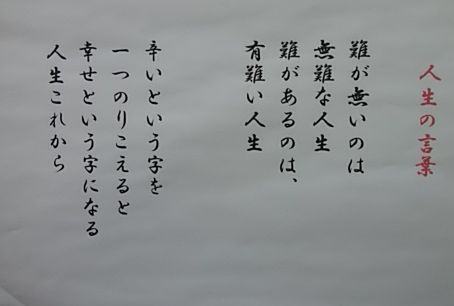 人生の言葉
難が無いのは
無難な人生
難があるのは、
有難い人生
辛いという字を
一つのりこえると
幸せという字になる
人生これから